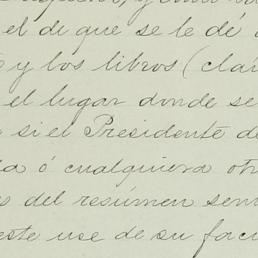 el de que se le dé
y los libros (clar
el lugar donde se
si el Presidente de
la ó cualquiera otr
es del resúmen sem
este use de su facu